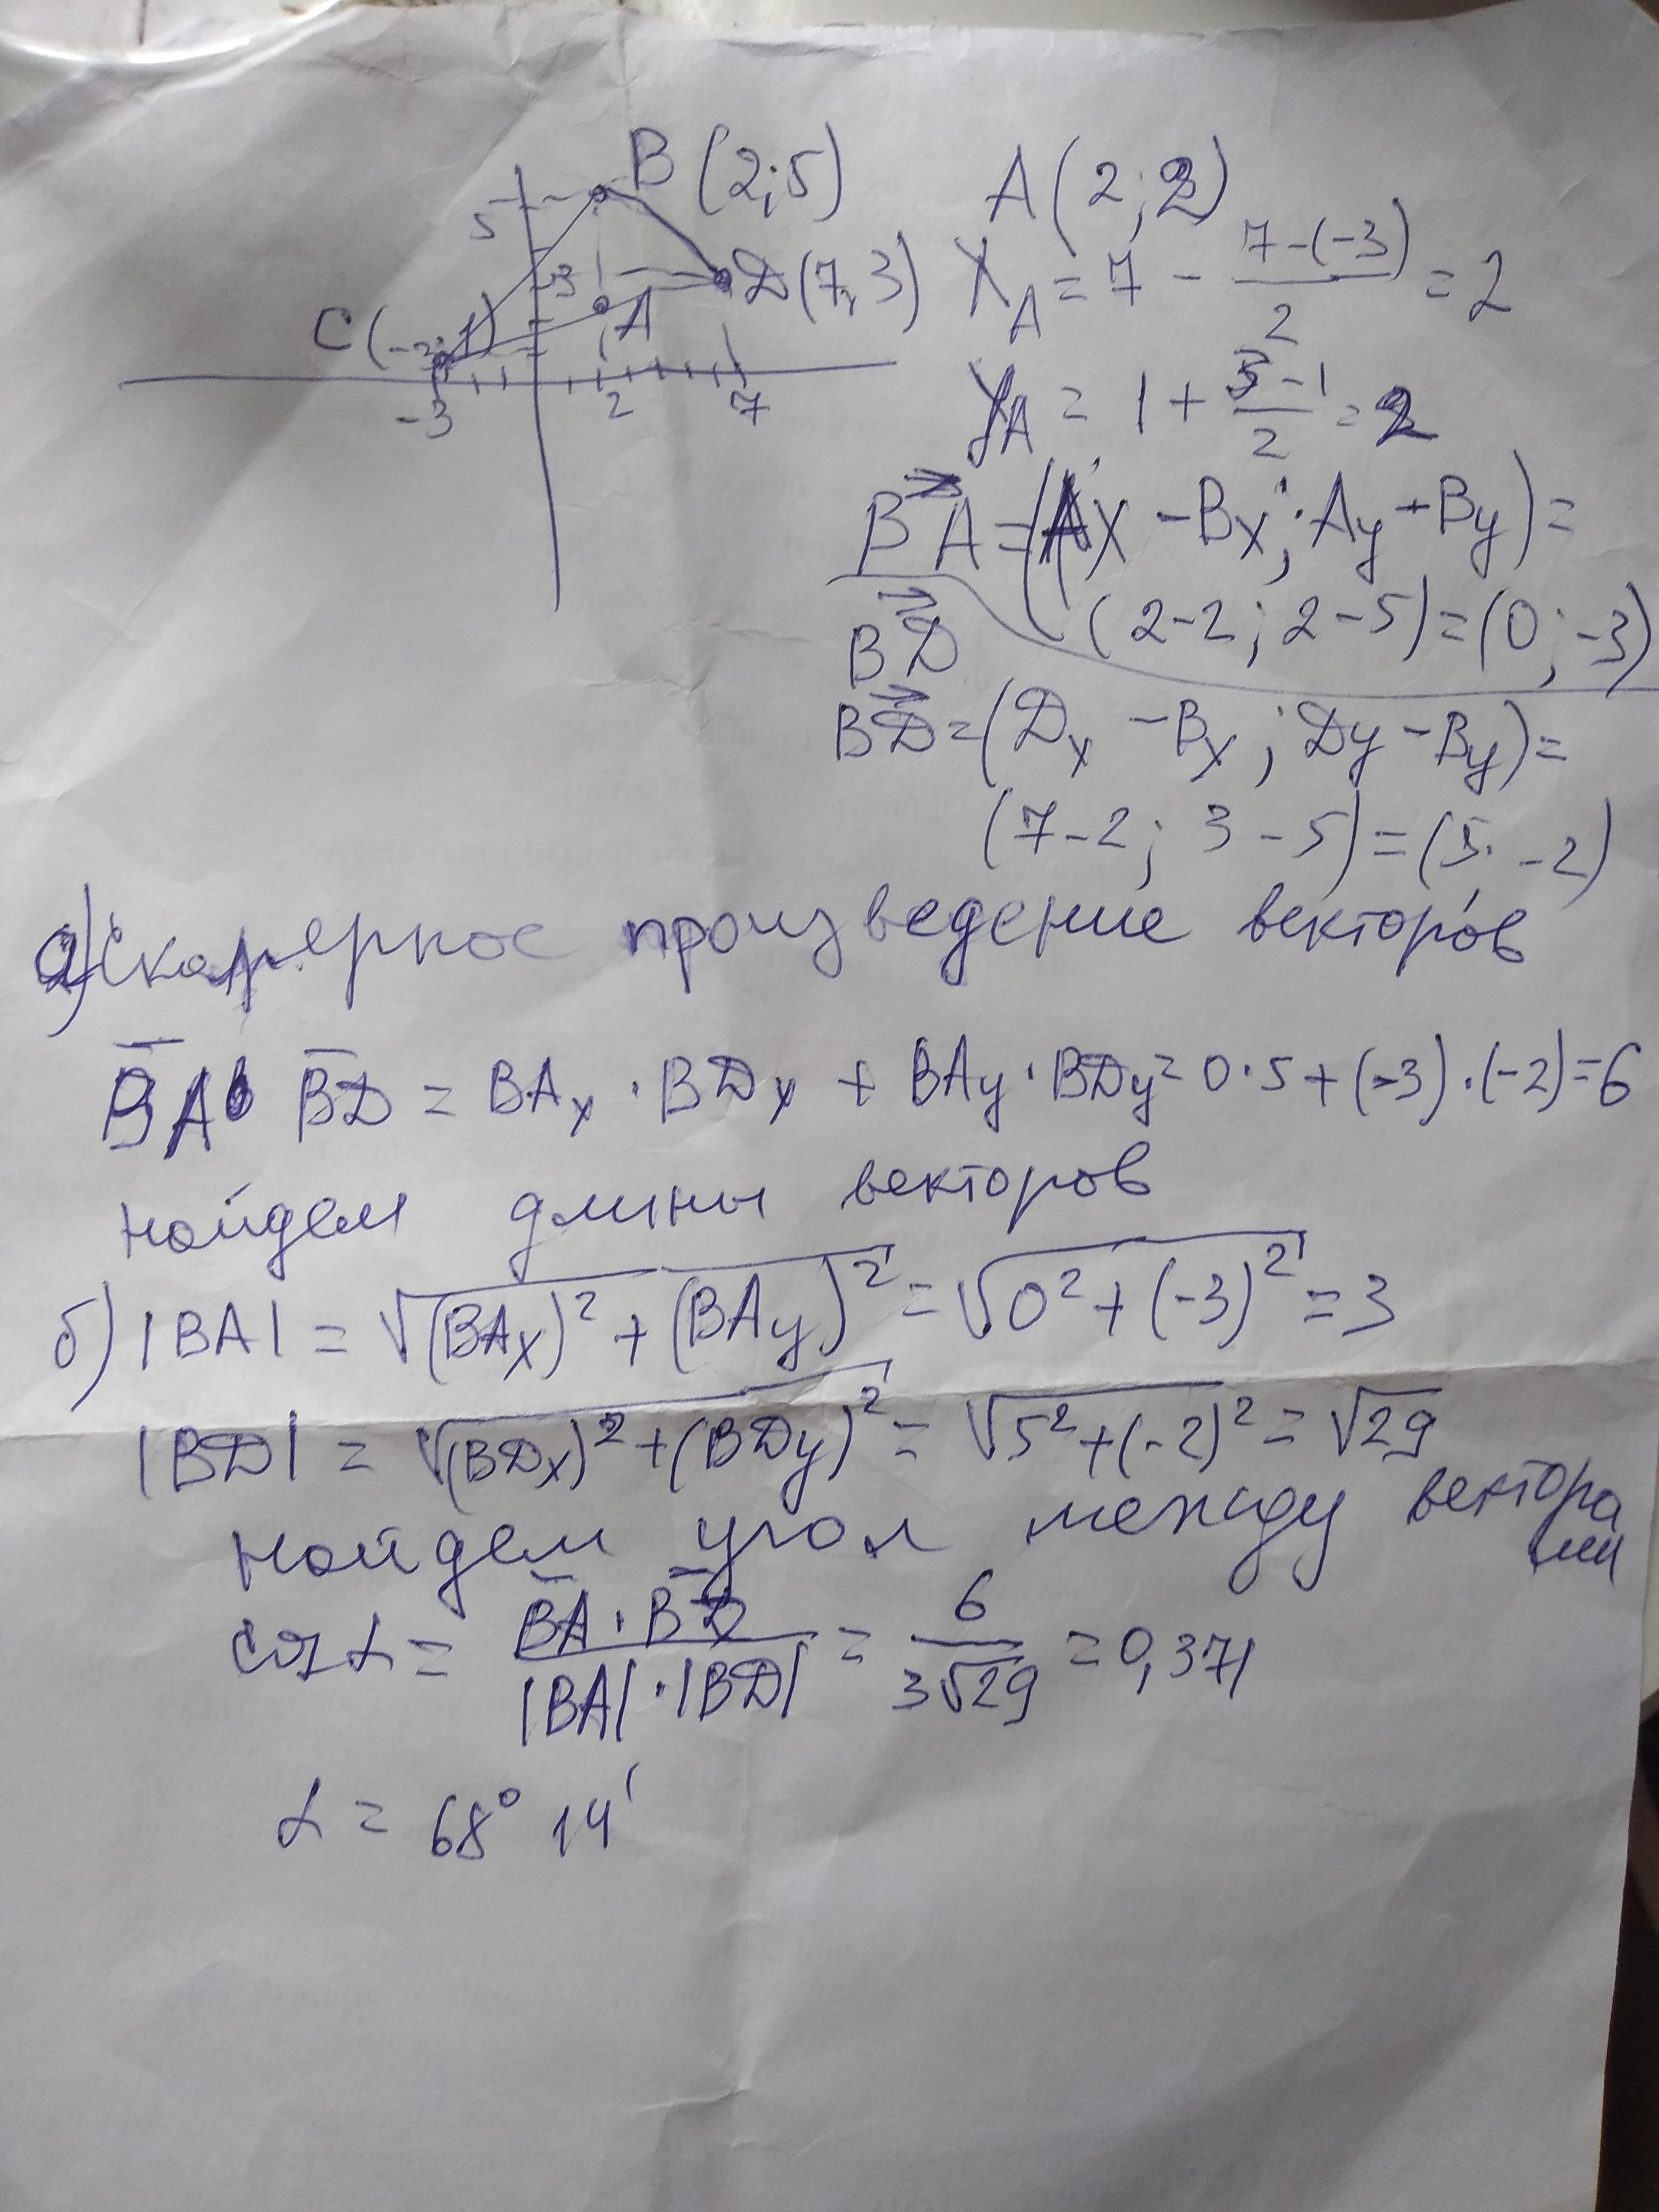 B (2;5)
A (2; 2)
5
3
D (7, 3)
X_A = 7 - (7-(-3))/2 = 2
C (-3; 1)
A
-3
2
7
y_A = 1 + (3-1)/2 = 2
BA = (Ax - Bx; Ay - By) =
(2-2; 2-5) = (0; -3)
BD
BD = (Dx - Bx; Dy - By) =
(7-2; 3-5) = (5; -2)
а) Скалярное произведение векторов
BA · BD = BAx · BDx + BAy · BDy = 0·5 + (-3)·(-2) = 6
найдем длины векторов
б) |BA| = √((BAx)² + (BAy)²) = √(0² + (-3)²) = 3
|BD| = √((BDx)² + (BDy)²) = √(5² + (-2)²) = √29
найдем угол между векторами
cos α = (BA · BD)/(|BA| · |BD|) = 6/(3√29) = 0,371
α = 68° 14'